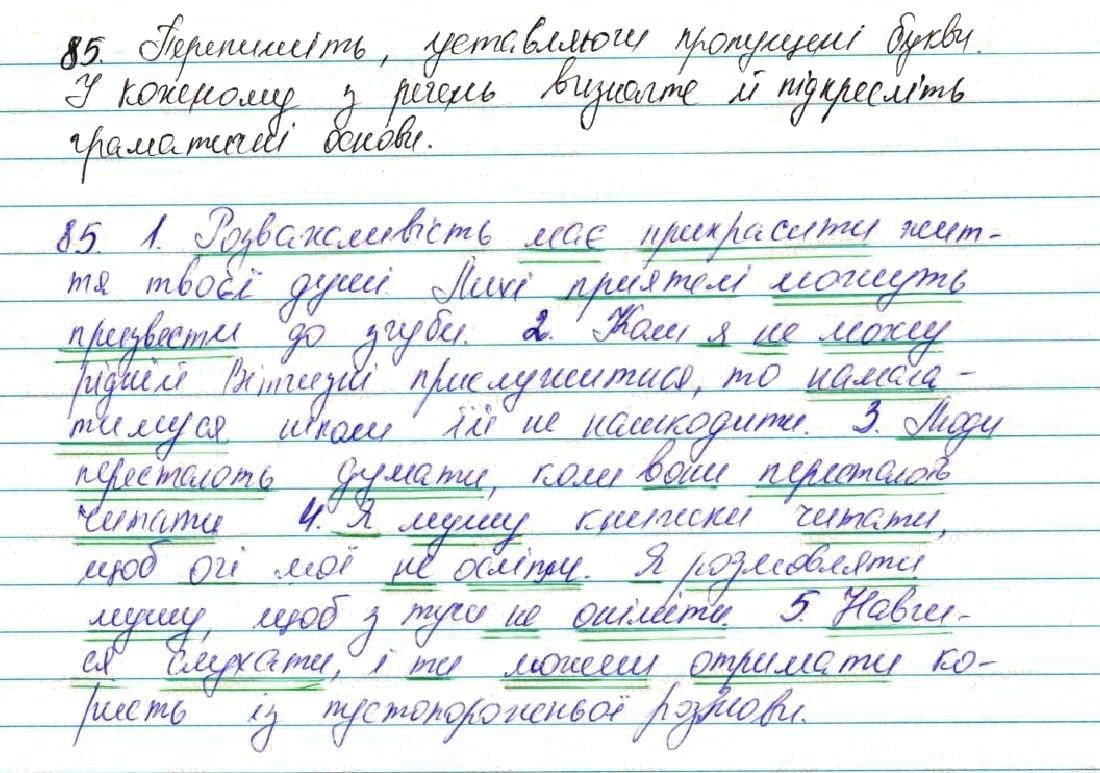 85. Перепишіть, уставляючи пропущені букви.
У кожному з речень визначте й підкресліть
граматичні основи.
85. 1. Розважливість має прикрасити жит-
тя твоєї душі. Лихі приятелі можуть
призвести до згуби. 2. Коли я не можу
рідній Вітчизні прислужитися, то намага-
тимуся ніколи їй не нашкодити. 3. Люди
перестають думати, коли вони перестають
читати 4. Я мушу книжки читати,
щоб очі мої не осліпли. Я розмовляти
мушу, щоб з туги не оніміти. 5. Навчи-
ся слухати, і ти можеш отримати ко-
ристь із пустопорожньої розмови.